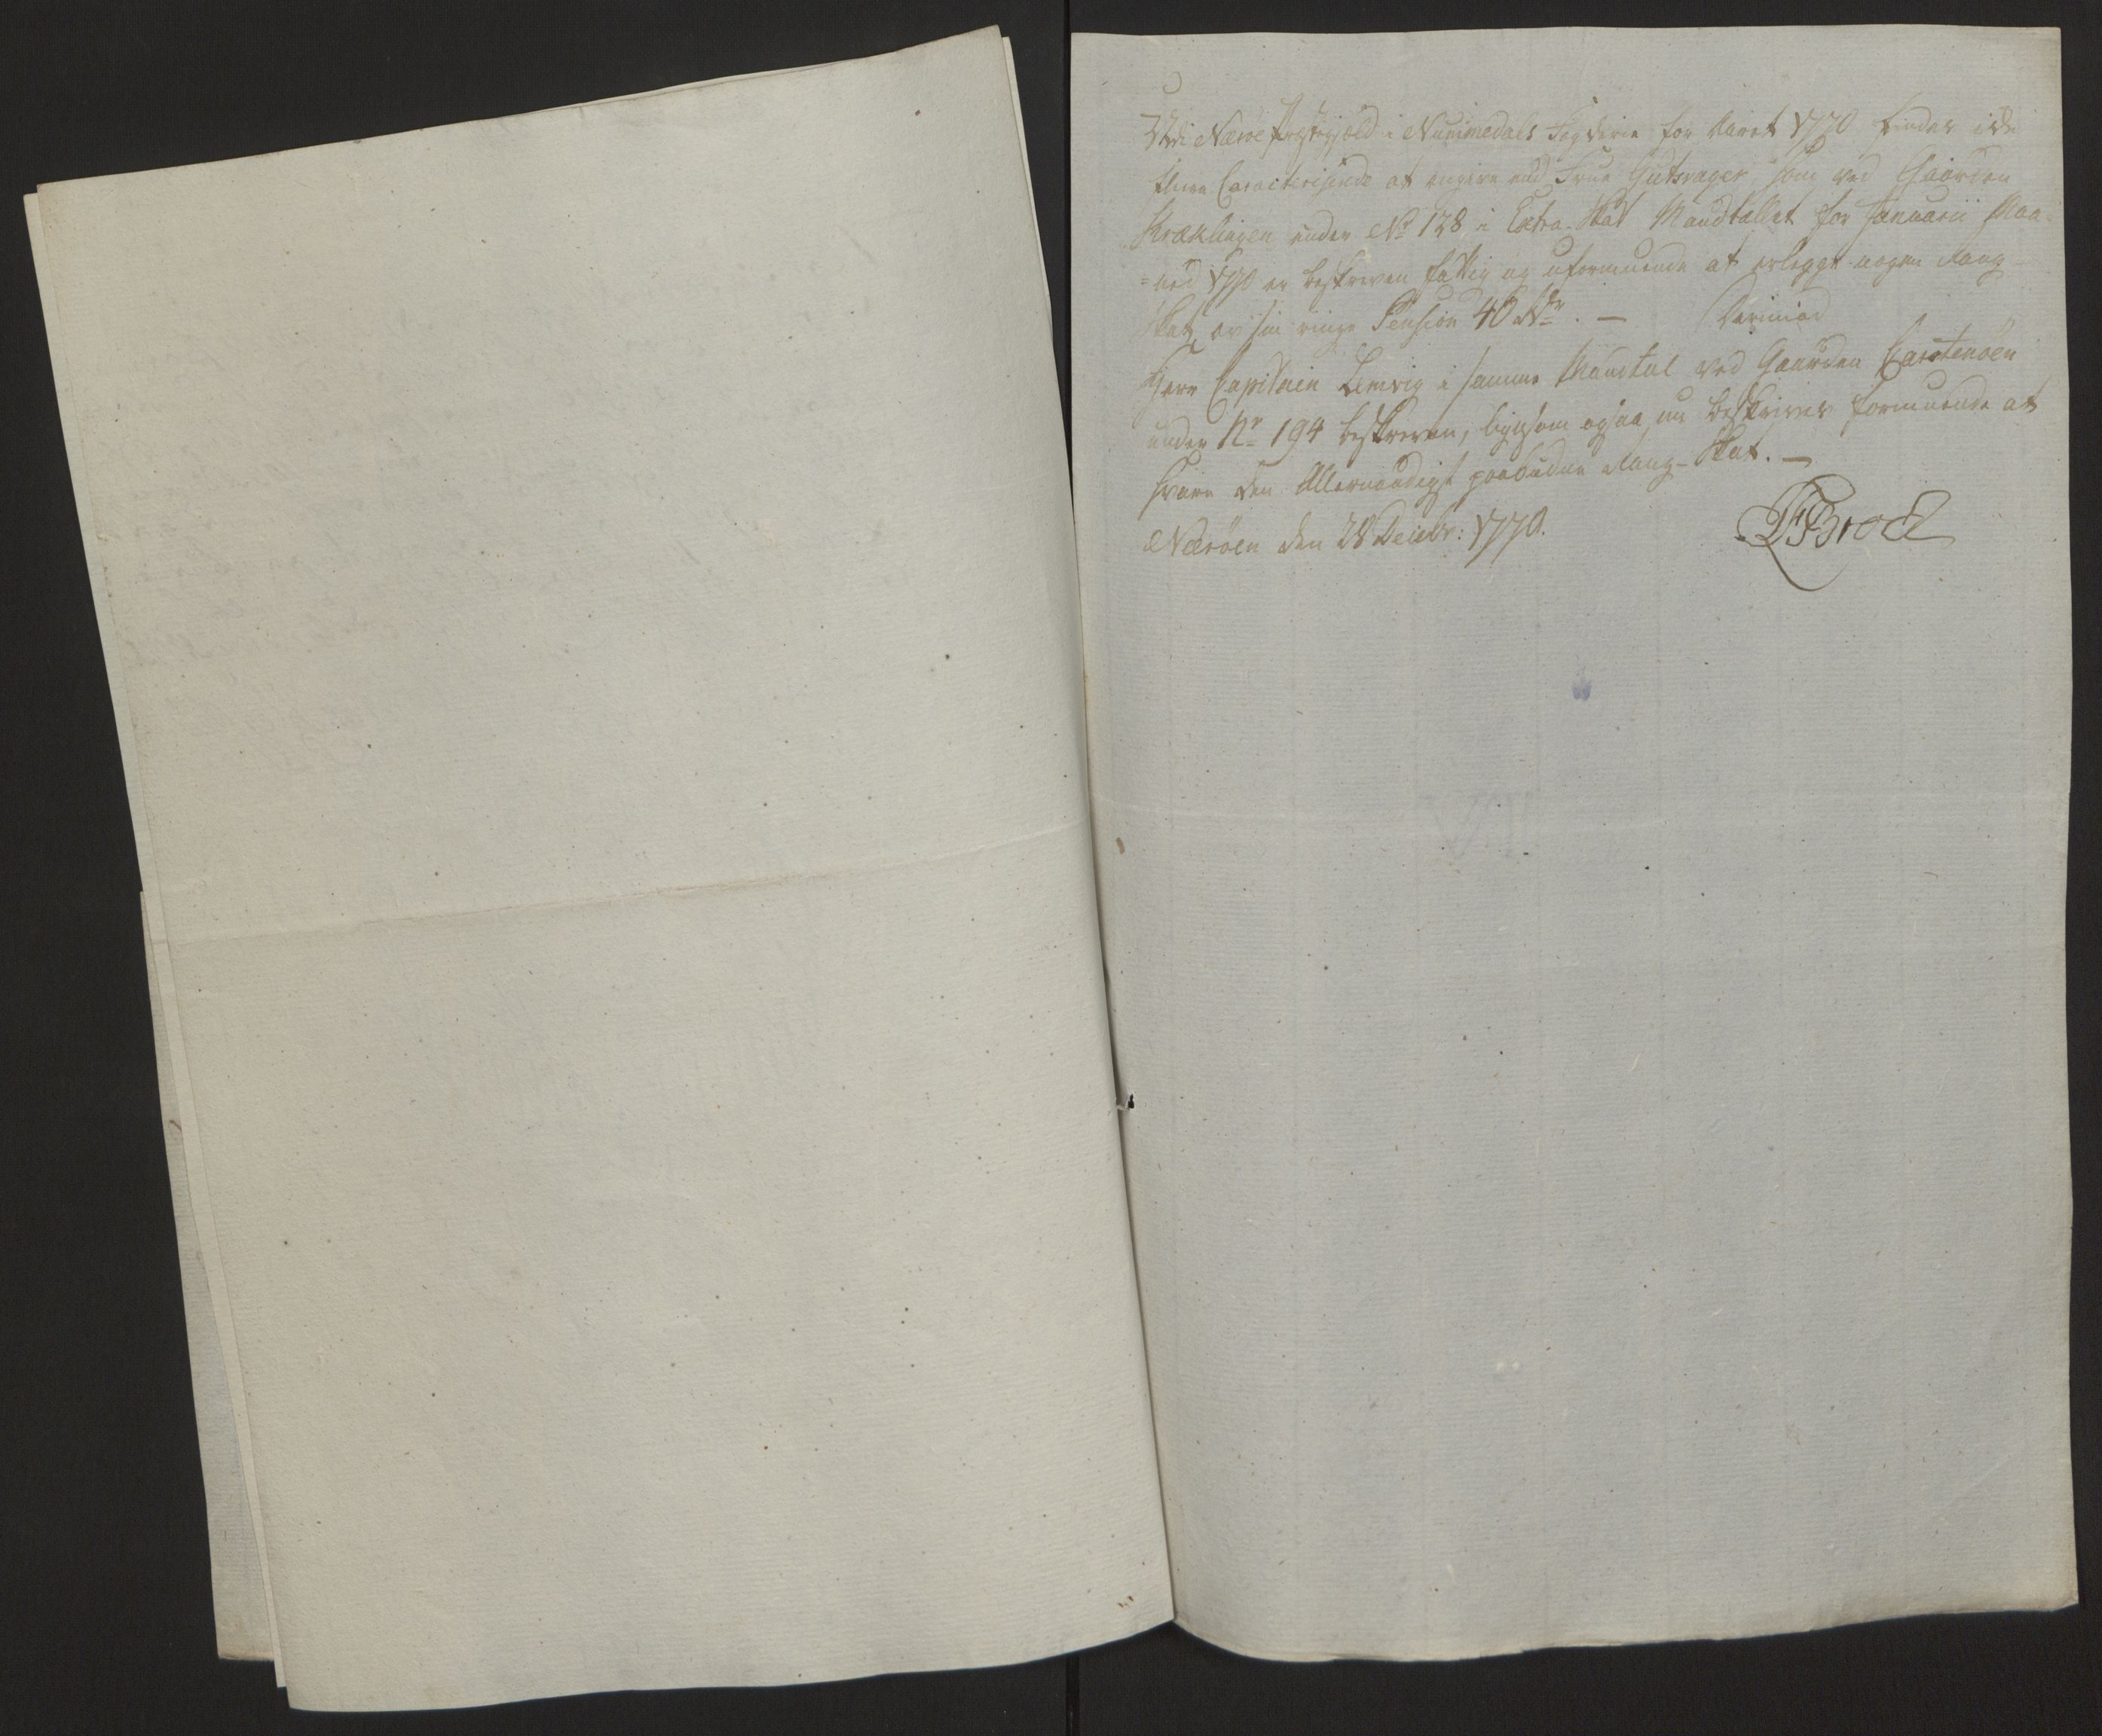 Udi Næroe Præstegield i Nummedals Fogderie for Aaret 1770 findes icke
fleere Caracteriserede at angive end Frue Gutsrager, som ved Gaarden
Kræklingen under No 128 i Extra-Skat Mandtallet for Januarii Maa-
=ned 1770 er beskreven fattig og uformuende at erlegge nogen Rang-
Skat, av sin ringe Pension 40 Rdr. — Derimod
Herr Capitain Lemvig i samme Mandtal ved Gaarden Carstenøen
under Nr 194 beskreven, ligesom ogsaa nu beskrives formuende at
svare den Allernaadigst paabudne Rang-Skat. —
Nærøen den 28 Decebr: 1770.
Brock